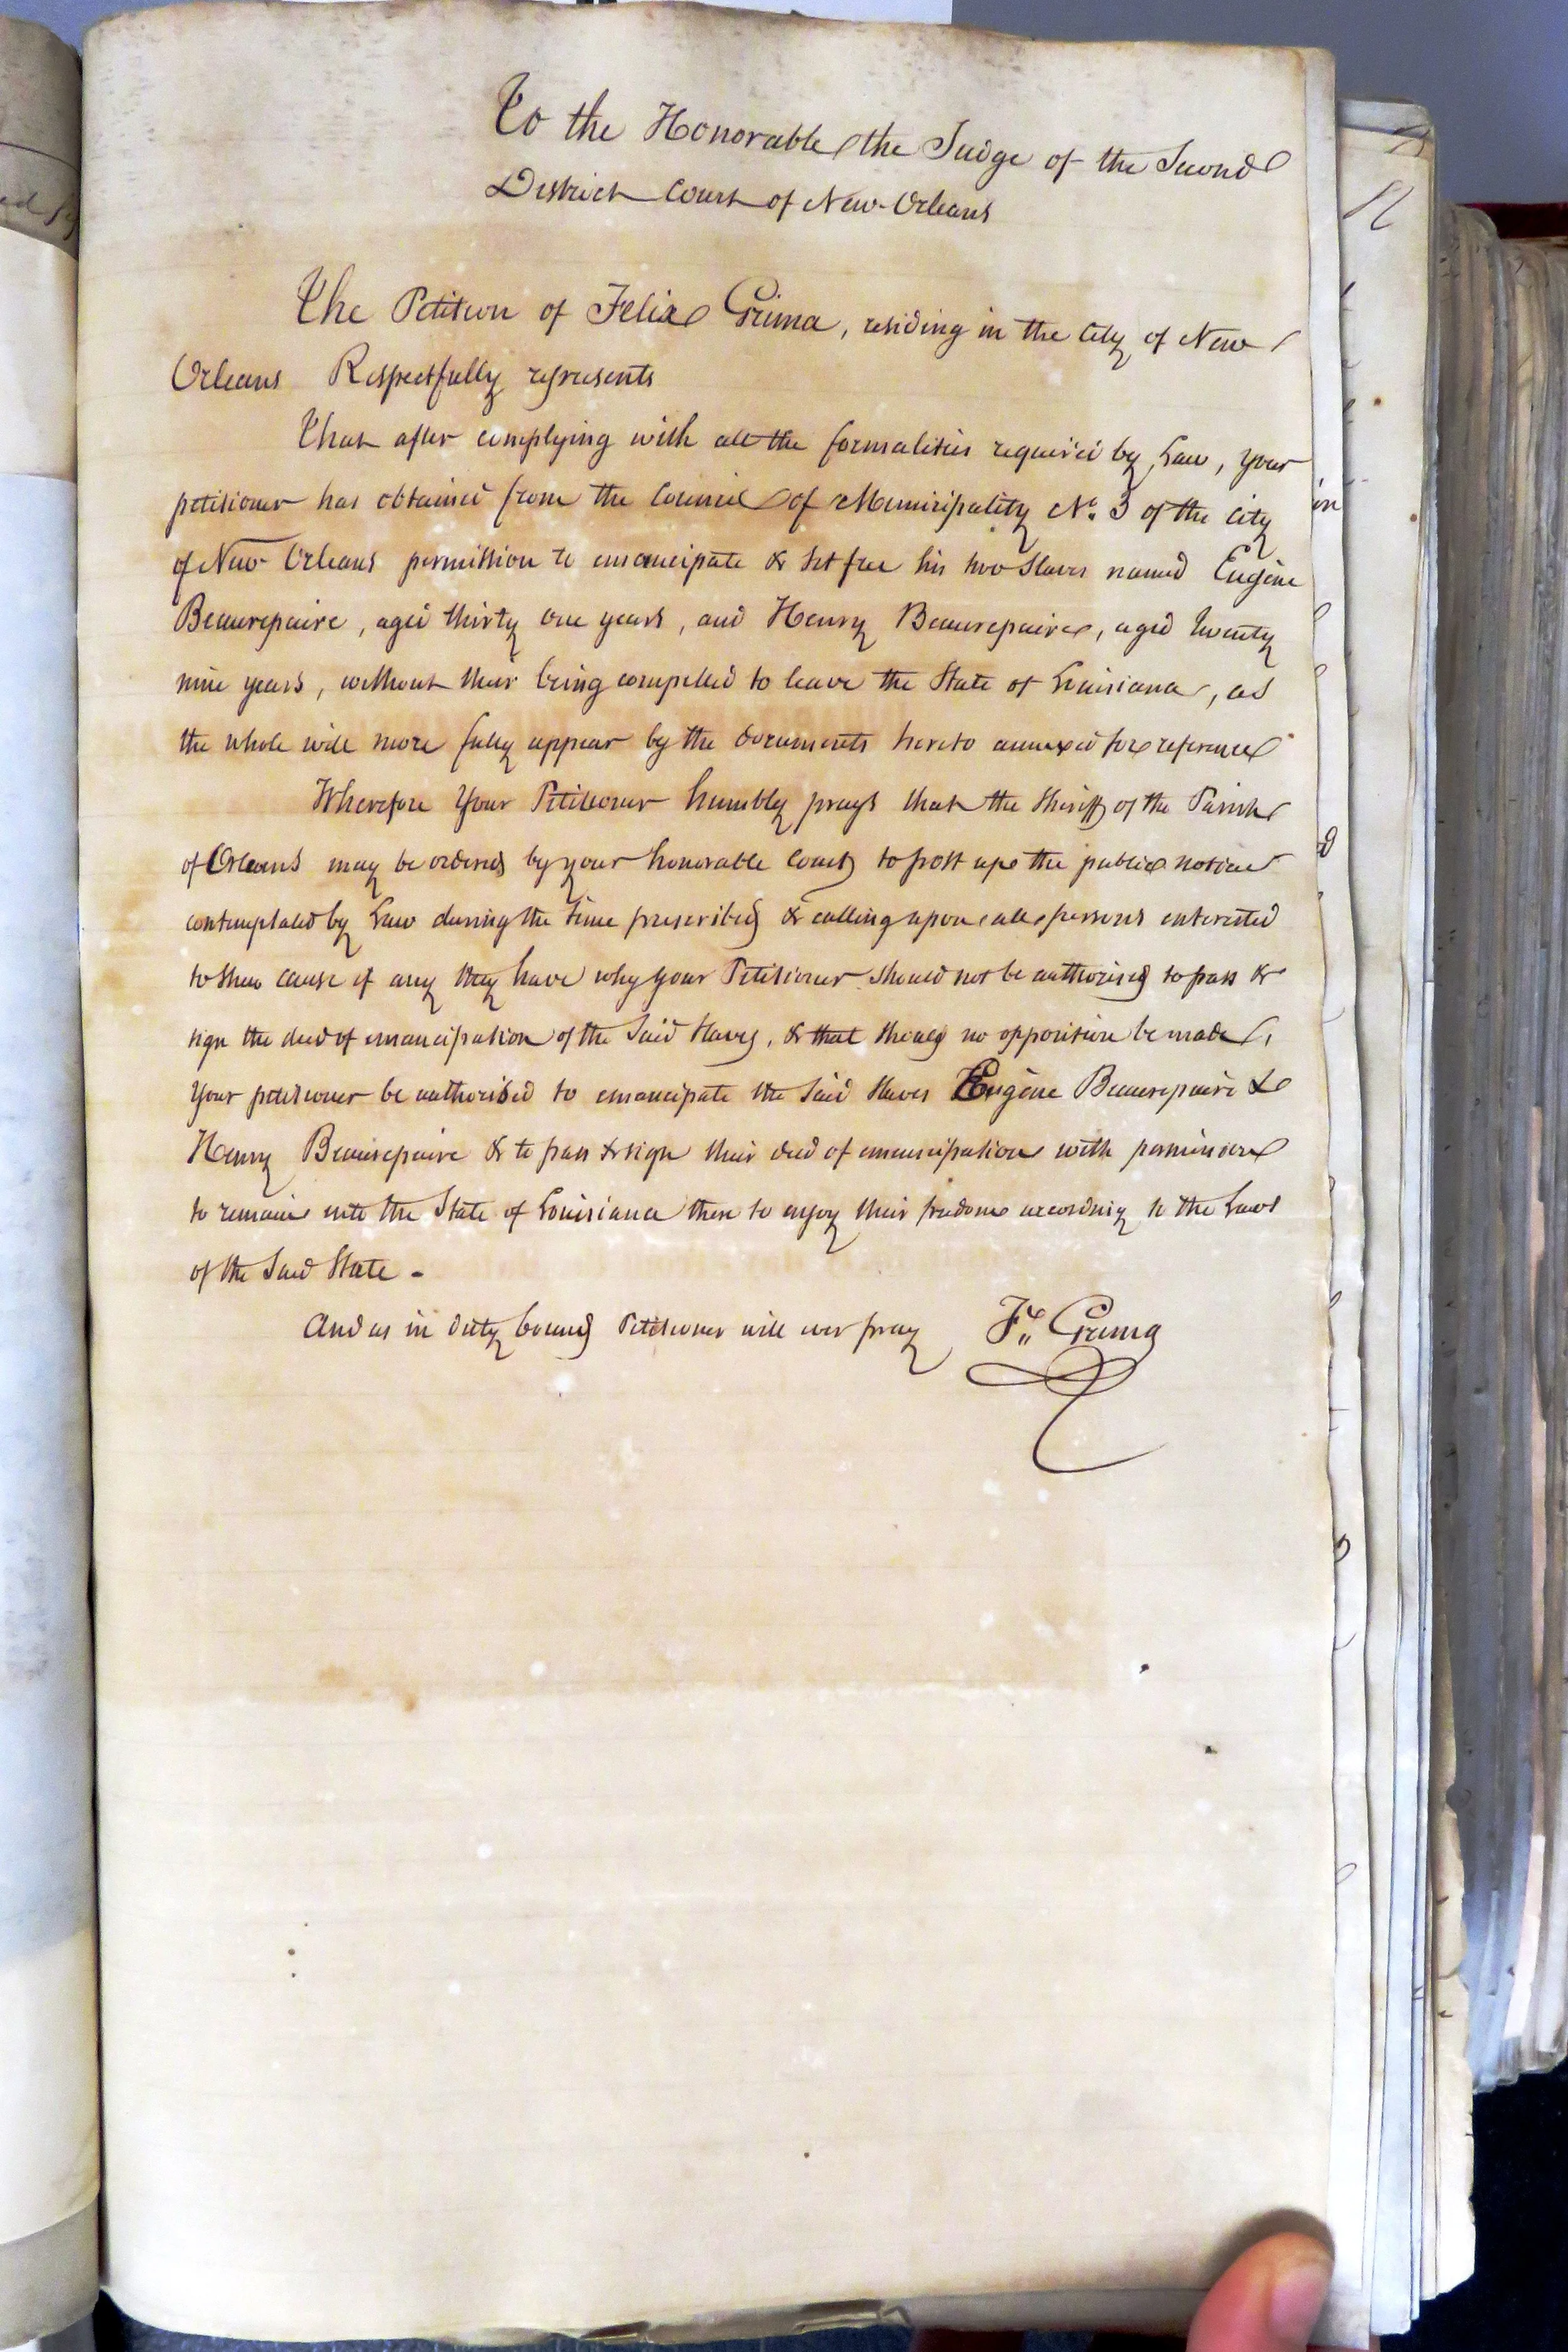 To the Honorable the Judge of the Second
District Court of New-Orleans
The Petition of Felix Grima, residing in the City of New
Orleans Respectfully represents
That after complying with all the formalities required by Law, your
petitioner has obtained from the Council of Municipality No. 3 of the City
of New Orleans permission to emancipate & set free his two Slaves named Eugène
Beaurepaire, aged thirty one years, and Henry Beaurepaire, aged twenty
nine years, without their being compelled to leave the State of Louisiana, as
the whole will more fully appear by the documents hereto annexed for reference
Wherefore Your Petitioner humbly prays that the Sheriff of the Parish
of Orleans may be ordered by your honorable Court to post up the public notice
contemplated by Law during the time prescribed & calling upon all persons interested
to shew cause if any they have why your Petitioner should not be authorised to pass &
sign the deed of emancipation of the Said Slaves, & that should no opposition be made,
Your petitioner be authorised to emancipate the Said Slaves Eugène Beaurepaire &
Henry Beaurepaire & to pass & sign their deed of emancipation with permission
to remain into the State of Louisiana there to enjoy their freedom according to the Laws
of the Said State -
And as in duty bound Petitioner will ever pray Fx Grima